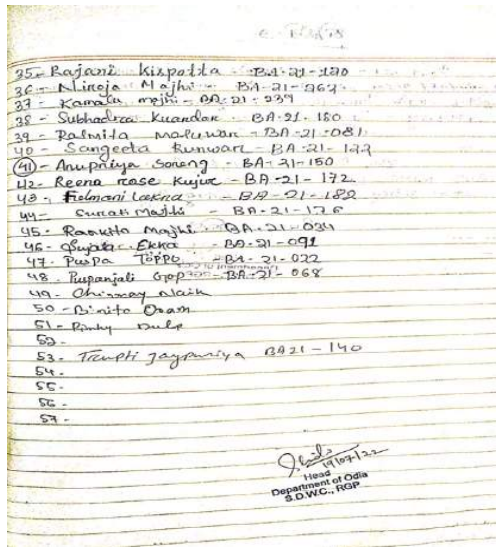 35- Rajani Kispotta - BA-21-120
36- Niroja Majhi - BA-21-263
37- Kamala majhi - BA-21-239
38- Subhadra Kuandar - BA-21-180
39- Rasmita - BA-21-081
40- Sangeeta Kunwar - BA-21-122
41- Anupriya Soreng - BA-21-150
42- Reena rose Kujur - BA-21-172
43- Felmani Lakra - BA-21-182
44- Sunati Majhi - BA-21-176
45- Majhi BA-21-034
46- Sujata Ekka - BA-21-091
47- Puspa Toppo - BA-21-022
48- Puspanjali Gop - BA-21-068
49- Chinmay Naik
50- Binita Oram
51- Pinky
52-
53- Trupti Jaypuriya BA21-140
54-
55-
56-
57-
19/07/22
Head
Department of Odia
S.D.W.C., RGP